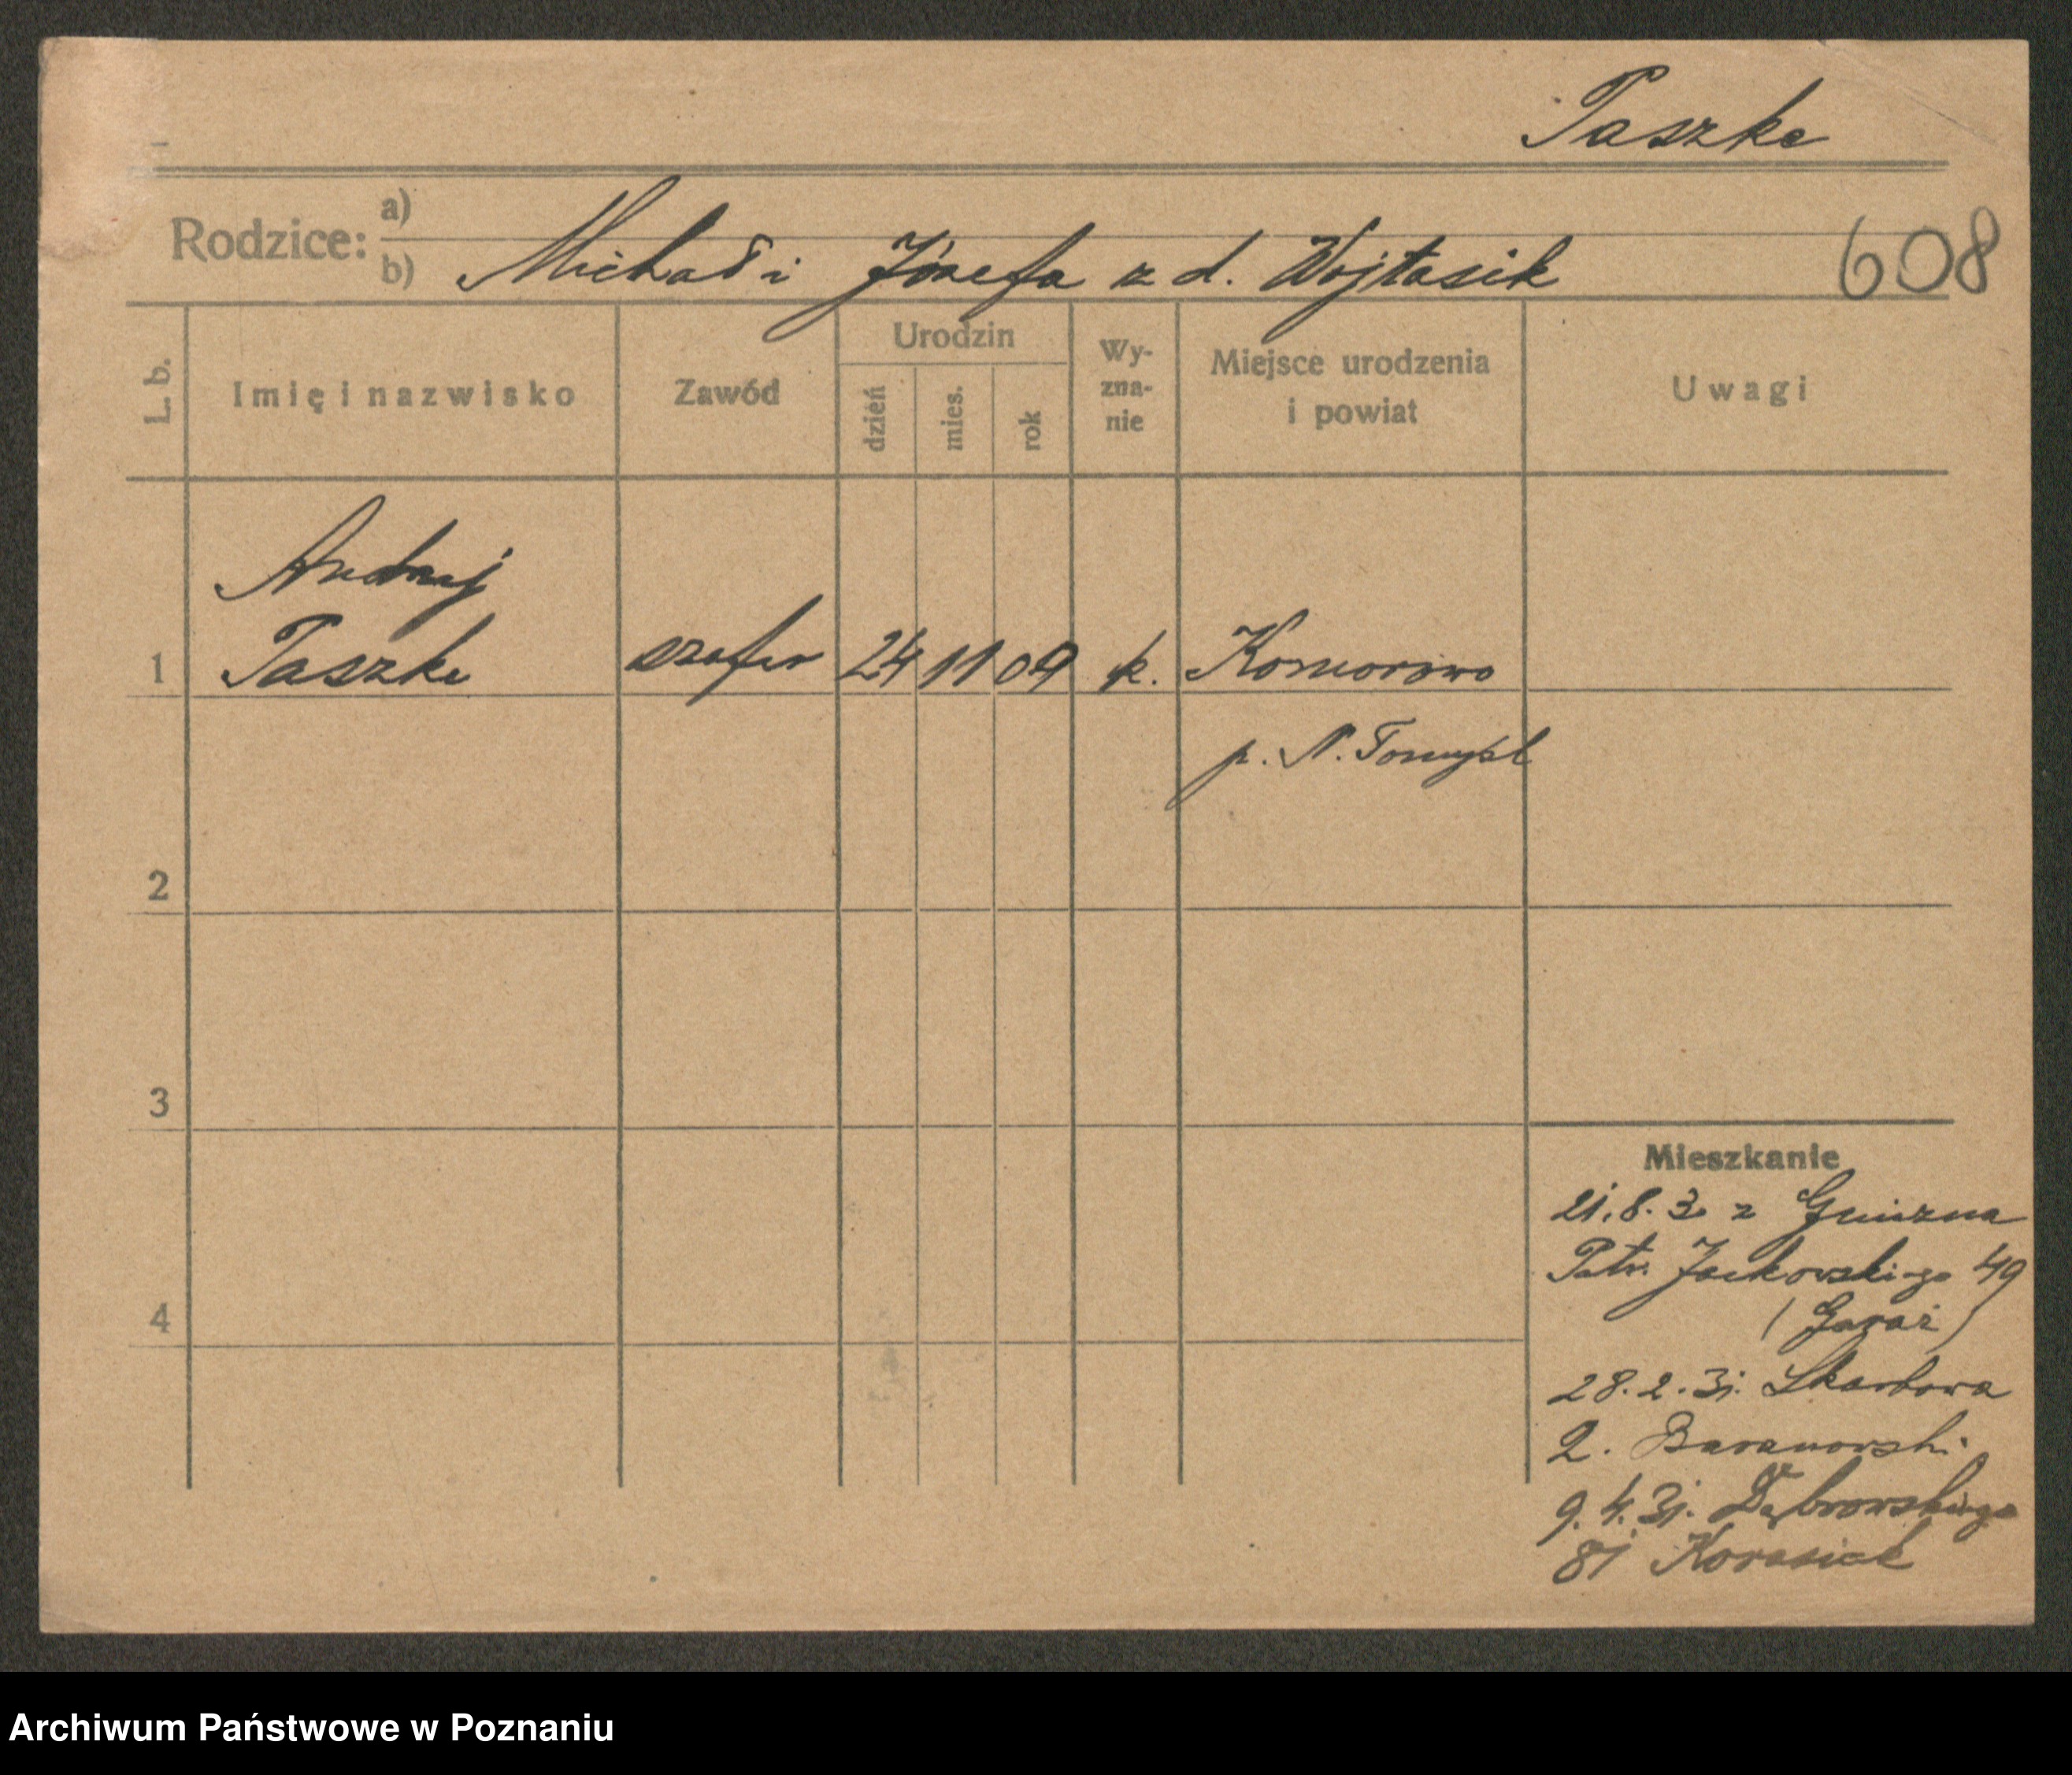 Paszke
Rodzice: a)
b) Michał i Józefa z d. Wojtasik
608
L. b.
Imię i nazwisko
Zawód
Urodzin
dzień
mies.
rok
Wy-
zna-
nie
Miejsce urodzenia
i powiat
Uwagi
Andrzej
1 Paszke szofer 24 11 09 k. Komorowo
p. N. Tomyśl
2
3
4
Mieszkanie
21.8.3. z Gniezna
Patr. Jackowskiego 49
(Garaż)
28.2.31. Skarbowa
2. Baranowski
9.4.31. Dąbrowskiego
81
Archiwum Państwowe w Poznaniu